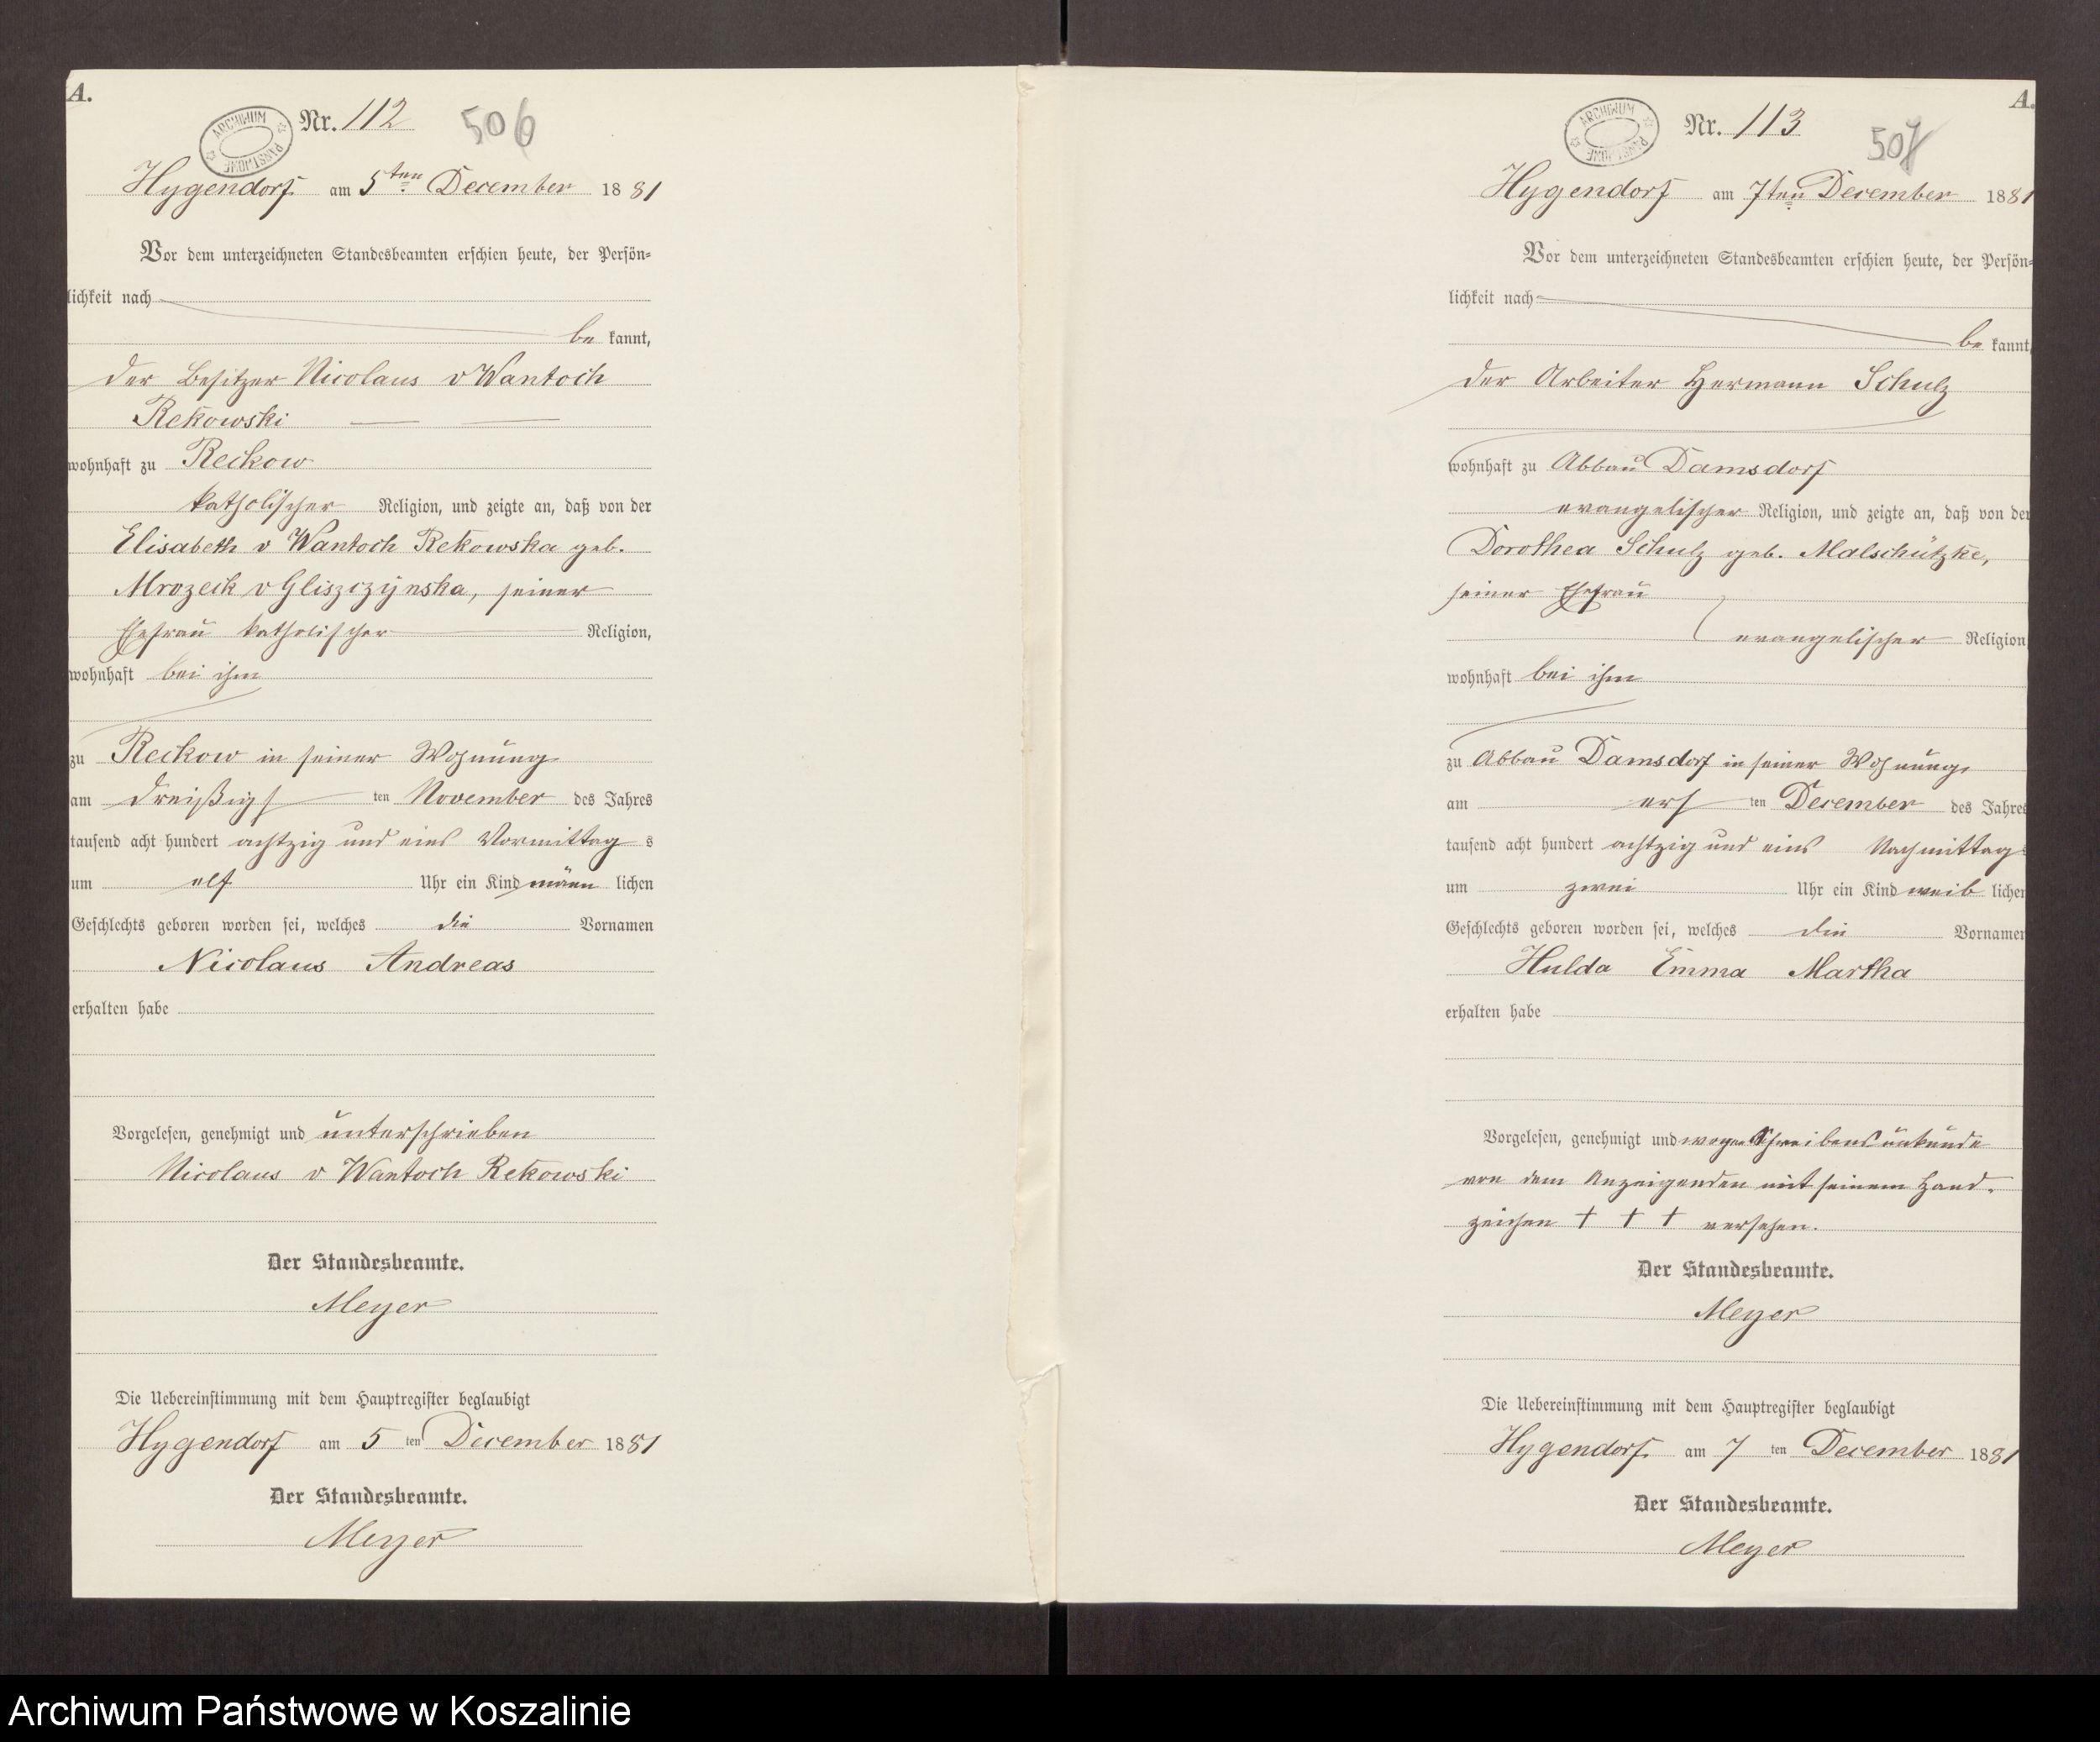 A.
ARCHIWUM PAŃSTWOWE
Nr. 112
506
Hygendorf am 5ten December 1881
Vor dem unterzeichneten Standesbeamten erschien heute, der Persön-
lichkeit nach
be kannt,
der Besitzer Nicolaus v Wantoch
Rekowski
wohnhaft zu Reckow
katholischer Religion, und zeigte an, daß von der
Elisabeth v Wantoch Rekowska geb.
Mrozeck v Gliszczynska, seiner
Ehefrau katholischer Religion,
wohnhaft bei ihm
zu Reckow in seiner Wohnung
am dreißigs ten November des Jahres
tausend acht hundert achtzig und eins Vormittag s
um elf Uhr ein Kind männ lichen
Geschlechts geboren worden sei, welches die Vornamen
Nicolaus Andreas
erhalten habe
Vorgelesen, genehmigt und unterschrieben
Nicolaus v Wantoch Rekowski
Der Standesbeamte.
Meyer
Die Uebereinstimmung mit dem Hauptregister beglaubigt
Hygendorf am 5 ten December 1881
Der Standesbeamte.
Meyer
A.
ARCHIWUM PAŃSTWOWE
Nr. 113
507
Hygendorf am 7ten December 1881
Vor dem unterzeichneten Standesbeamten erschien heute, der Persön-
lichkeit nach
be kannt,
der Arbeiter Hermann Schulz
wohnhaft zu Abbau Damsdorf
evangelischer Religion, und zeigte an, daß von der
Dorothea Schulz geb. Malschützke,
seiner Ehefrau
evangelischer Religion
wohnhaft bei ihm
zu Abbau Damsdorf in seiner Wohnung,
am ers ten December des Jahres
tausend acht hundert achtzig und eins Nachmittag s
um zwei Uhr ein Kind weib lichen
Geschlechts geboren worden sei, welches die Vornamen
Hulda Emma Martha
erhalten habe
Vorgelesen, genehmigt und wegen Schreibensunkunde
von dem Anzeigenden mit seinem Hand-
zeichen + + + versehen.
Der Standesbeamte.
Meyer
Die Uebereinstimmung mit dem Hauptregister beglaubigt
Hygendorf am 7 ten December 1881
Der Standesbeamte.
Meyer
Archiwum Państwowe w Koszalinie